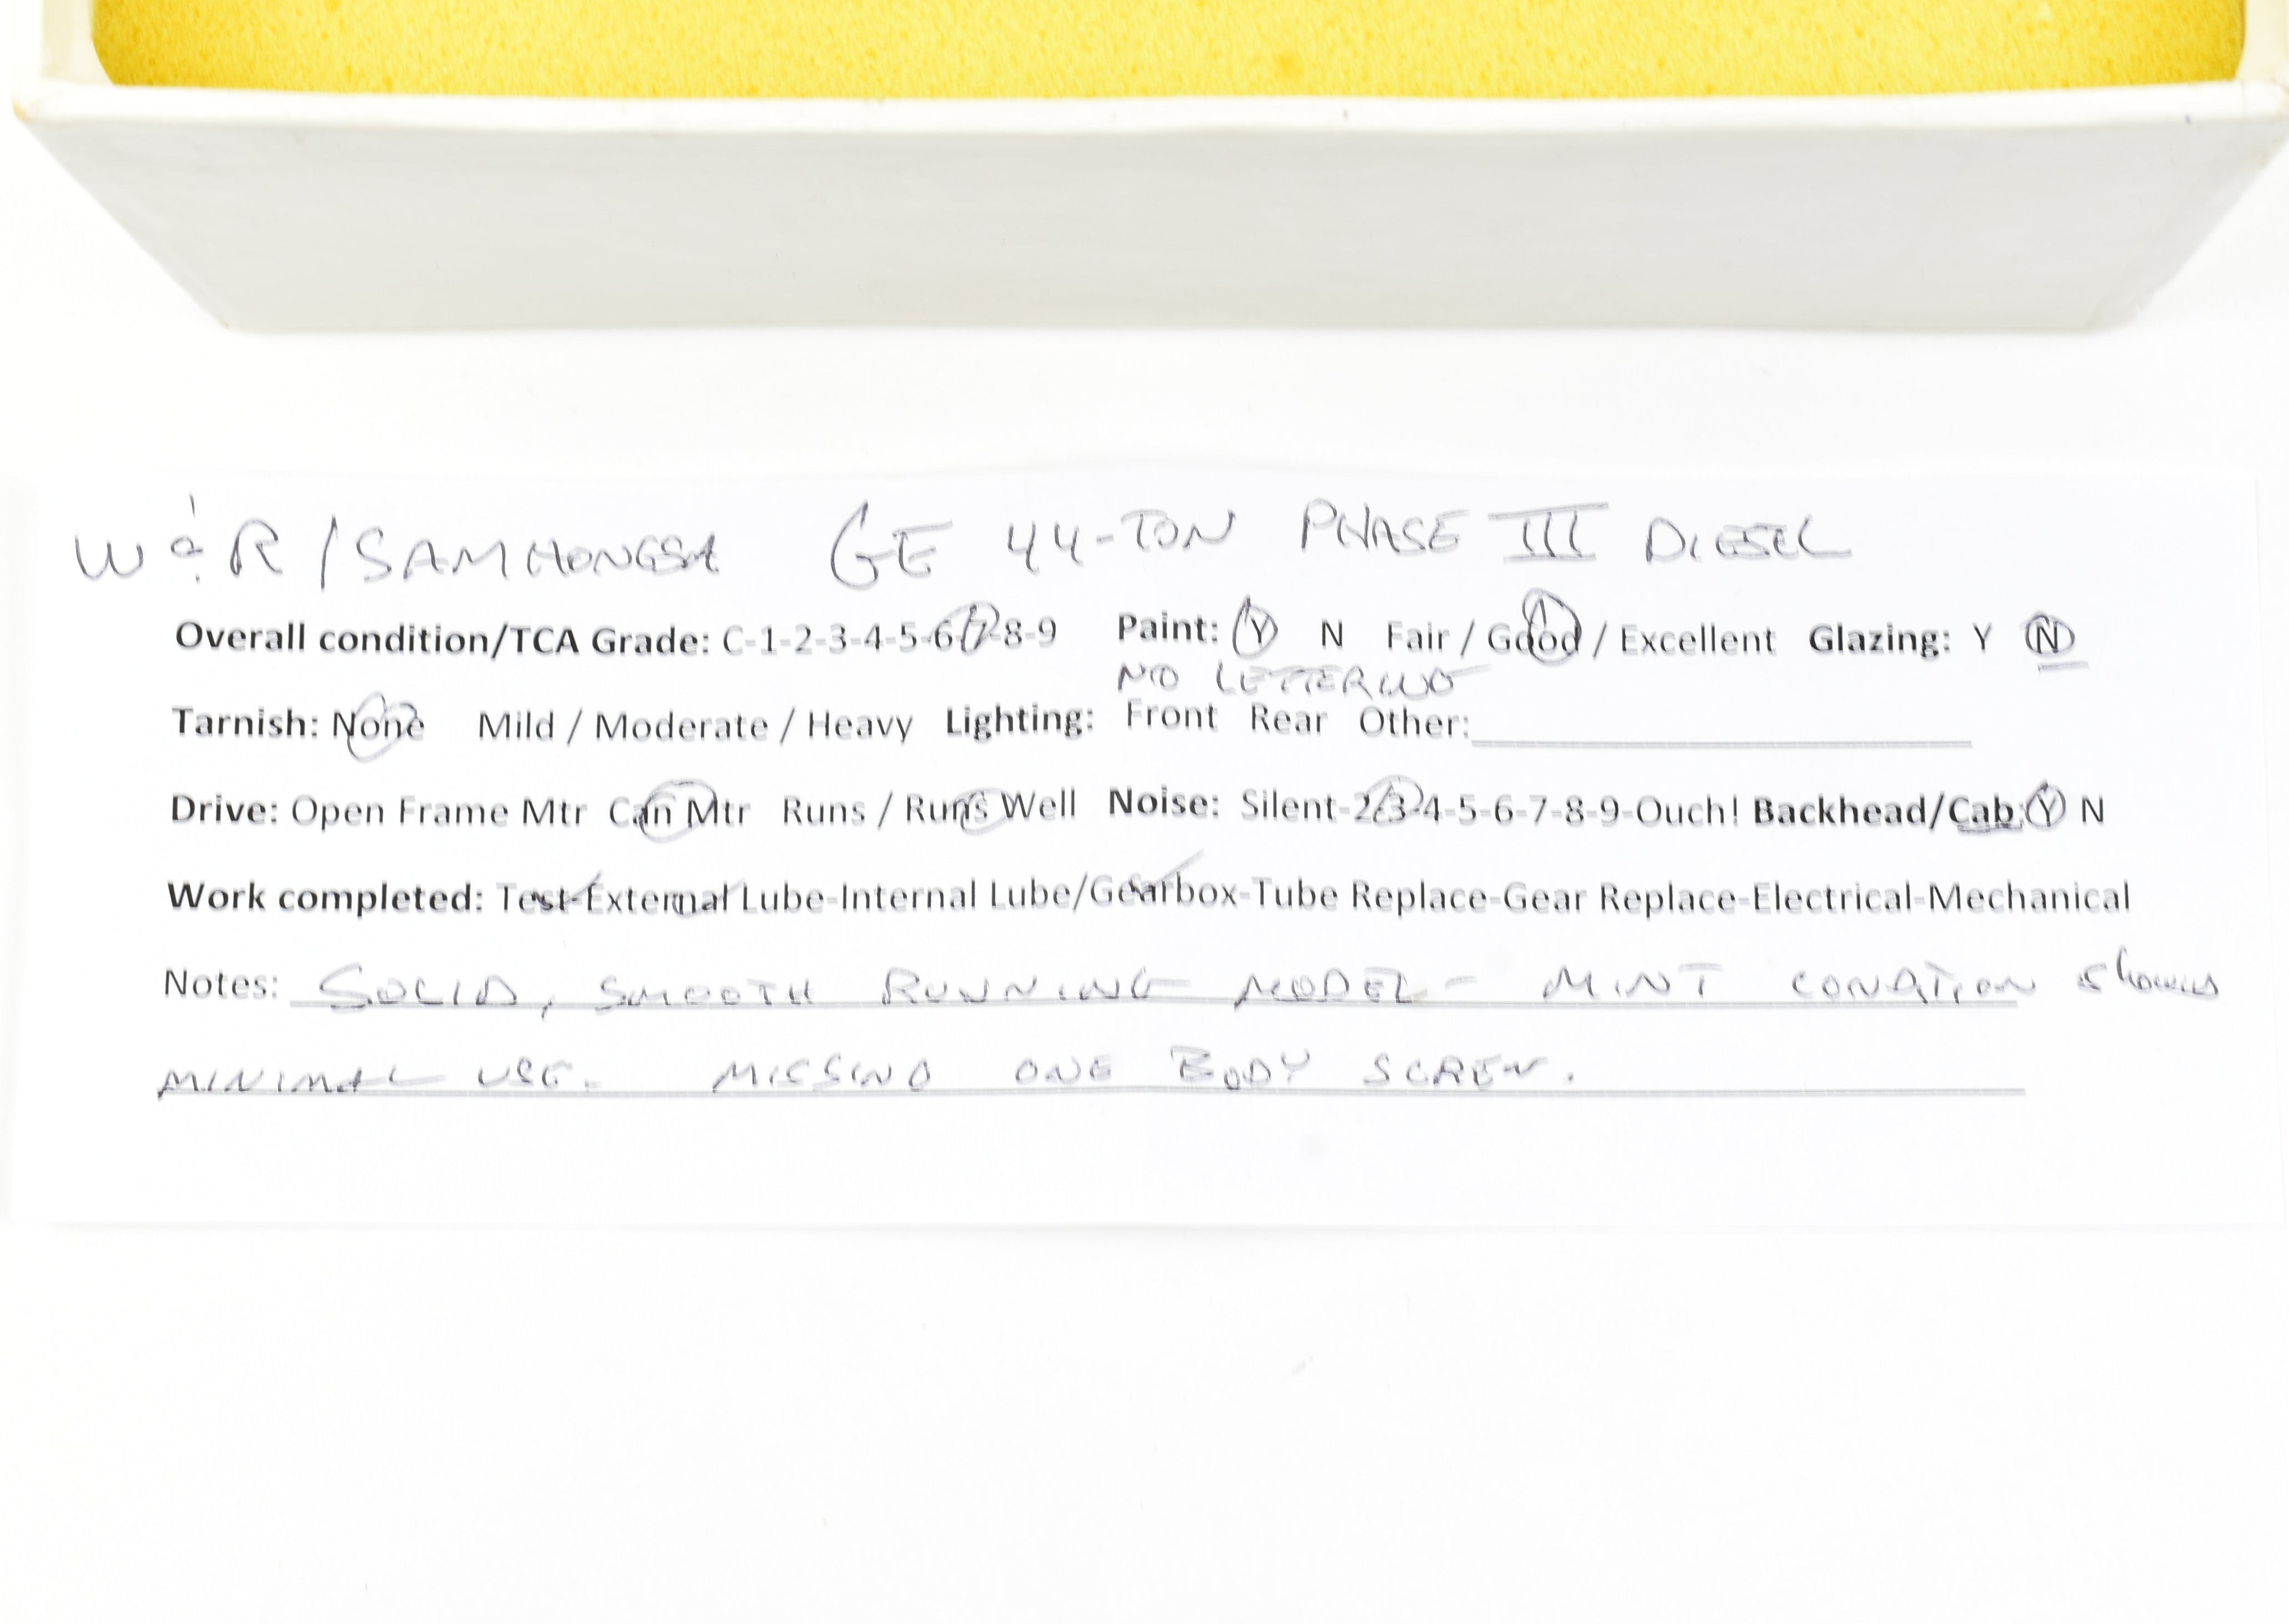 W & R / SAMHONGSA GE 44-TON PHASE III DIESEL
Overall condition/TCA Grade: C-1-2-3-4-5-6-7-8-9 Paint: Y N Fair / Good / Excellent Glazing: Y N
NO LETTERING
Tarnish: None Mild / Moderate / Heavy Lighting: Front Rear Other:
Drive: Open Frame Mtr Can Mtr Runs / Runs Well Noise: Silent-2-3-4-5-6-7-8-9-Ouch! Backhead/Cab: Y N
Work completed: Test-External Lube-Internal Lube/Gearbox-Tube Replace-Gear Replace-Electrical-Mechanical
Notes: SOLID, SMOOTH RUNNING MODEL - MINT CONDITION shows
MINIMAL USE. MISSING ONE BODY SCREW.